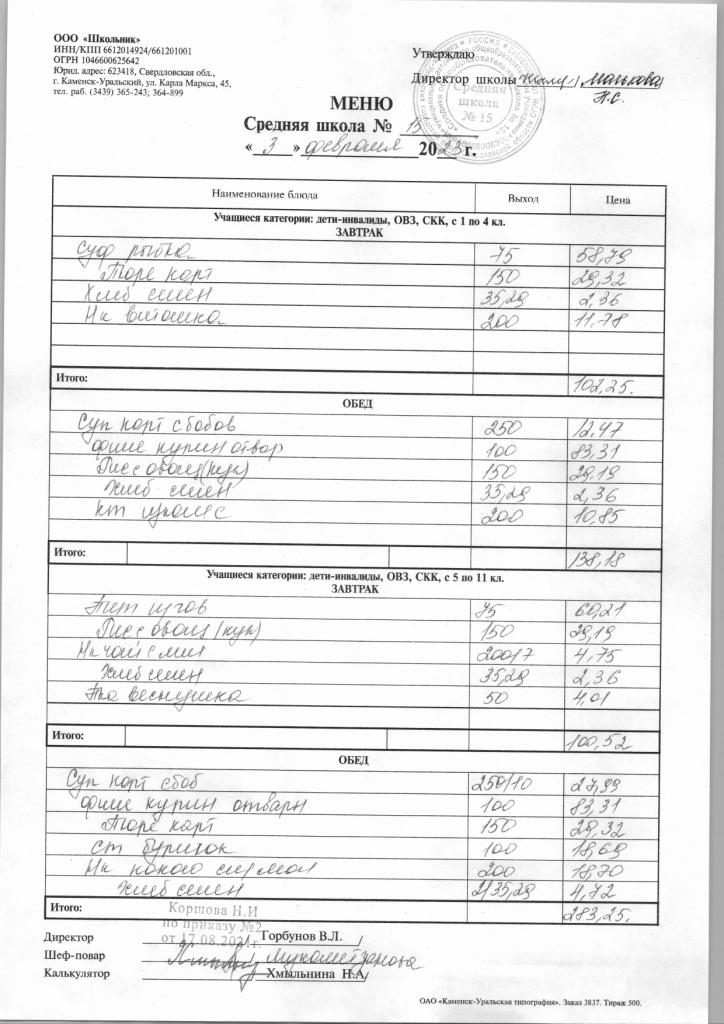 ООО «Школьник»
ИНН/КПП 6612014924/661201001
ОГРН 1046600625642
Юрид. адрес: 623418, Свердловская обл.,
г. Каменск-Уральский, ул. Карла Маркса, 45,
тел. раб. (3439) 365-243; 364-899
Утверждаю
Директор школы
Средняя школа № 15
МЕНЮ
Средняя школа № 15
« 3 » февраля 2023 г.
Наименование блюда Выход Цена
Учащиеся категории: дети-инвалиды, ОВЗ, СКК, с 1 по 4 кл.
ЗАВТРАК
Суф рыбн 75 58,79
Пюре карт 150 29,32
Хлеб смен 35,29 2,36
Нк витошка 200 11.78
Итого: 102,25.
ОБЕД
Суп карт с бобов 250 12.47
филе курин отвар 100 83,31
Рис с овощ (кук) 150 29,19
Хлеб смен 35,29 2,36
200 10,85
Итого: 138,18
Учащиеся категории: дети-инвалиды, ОВЗ, СКК, с 5 по 11 кл.
ЗАВТРАК
75 60,21
Рис с овощ (кук) 150 29,19
Нк чай с 200/7 4,75
Хлеб смен 35,29 2,36
веснушка 50 4,01
Итого: 100,52
ОБЕД
Суп карт с боб 250/10 27,99
филе курин отварн 100 83,31
Пюре карт 150 29,32
100 18,69
Нк какао с 200 18,70
Хлеб смен 2/35,29 4,72
Итого: 283,25.
Коршова Н.И
по приказу №2
от 17.08.2021г.
Директор / Горбунов В.Л. /
Шеф-повар / Мухометзянова
Калькулятор / Хмыльнина Н.А /
ОАО «Каменск-Уральская типография». Заказ 3837. Тираж 500.